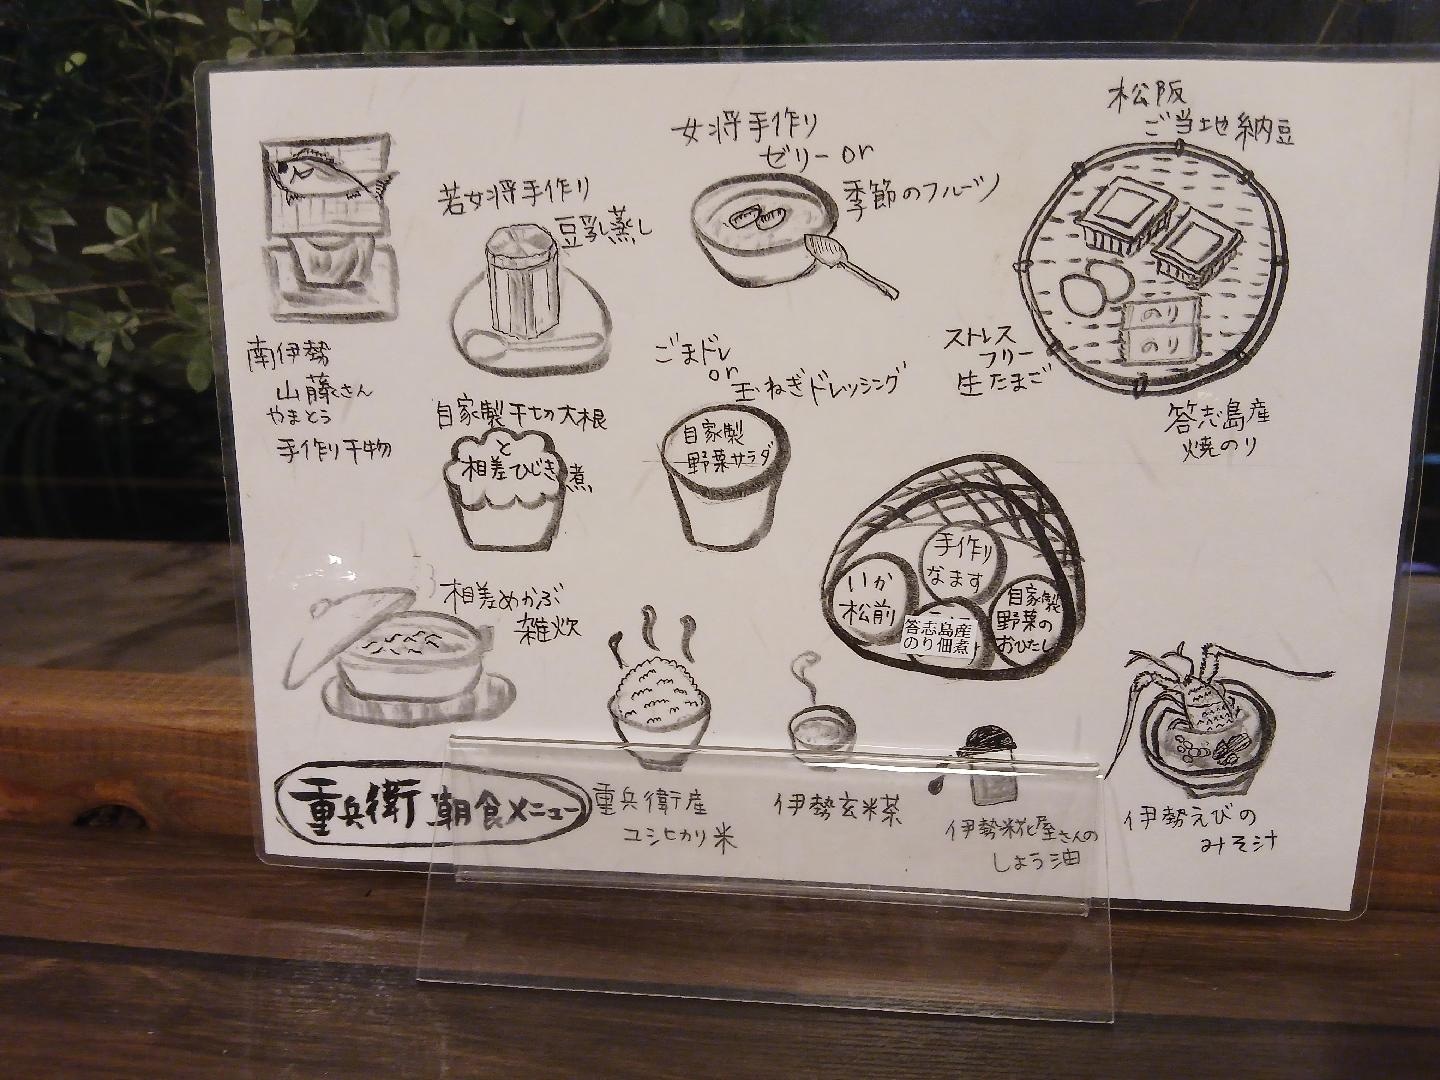 南伊勢
山藤さん
やまとう
手作り干物
若女将手作り
豆乳蒸し
女将手作り
ゼリーor
季節のフルーツ
松阪
ご当地納豆
のり
のり
ストレス
フリー
生たまご
答志島産
焼のり
自家製干切大根
と
相差ひじき煮
ごまドレ
or
玉ねぎドレッシング
自家製
野菜サラダ
手作り
なます
いか
松前
答志島産
のり佃煮
自家製
野菜の
おひたし
相差めかぶ
雑炊
重兵衛 朝食メニュー
重兵衛産
コシヒカリ米
伊勢玄米茶
伊勢糀屋さんの
しょう油
伊勢えびの
みそ汁